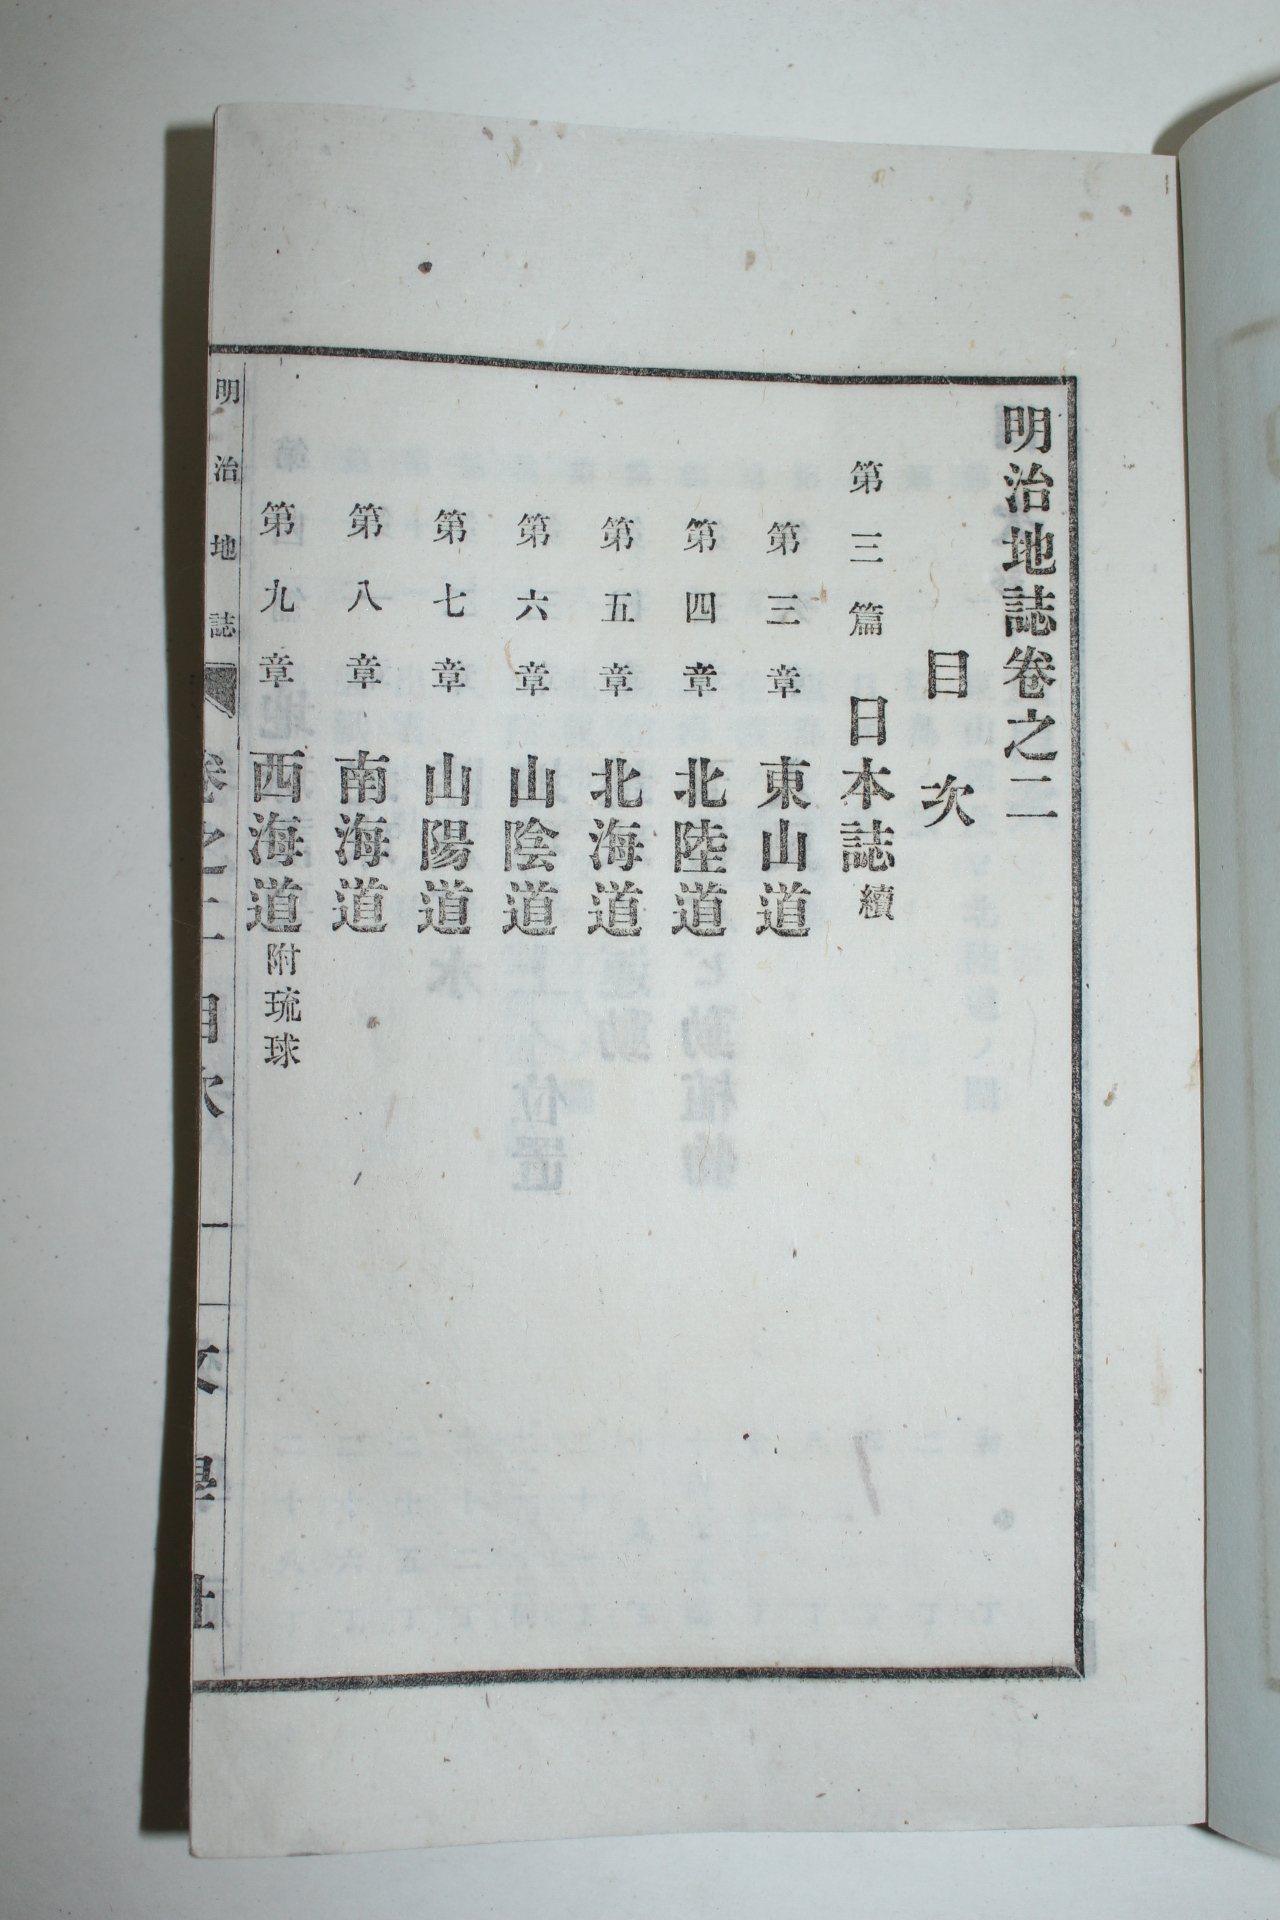 明治地誌卷之二
目次
第三篇 日本誌 續
第三章 東山道
第四章 北陸道
第五章 北海道
第六章 山陰道
第七章 山陽道
第八章 南海道
第九章 西海道 附琉球
明治地誌 卷之二 目次 一 文學社